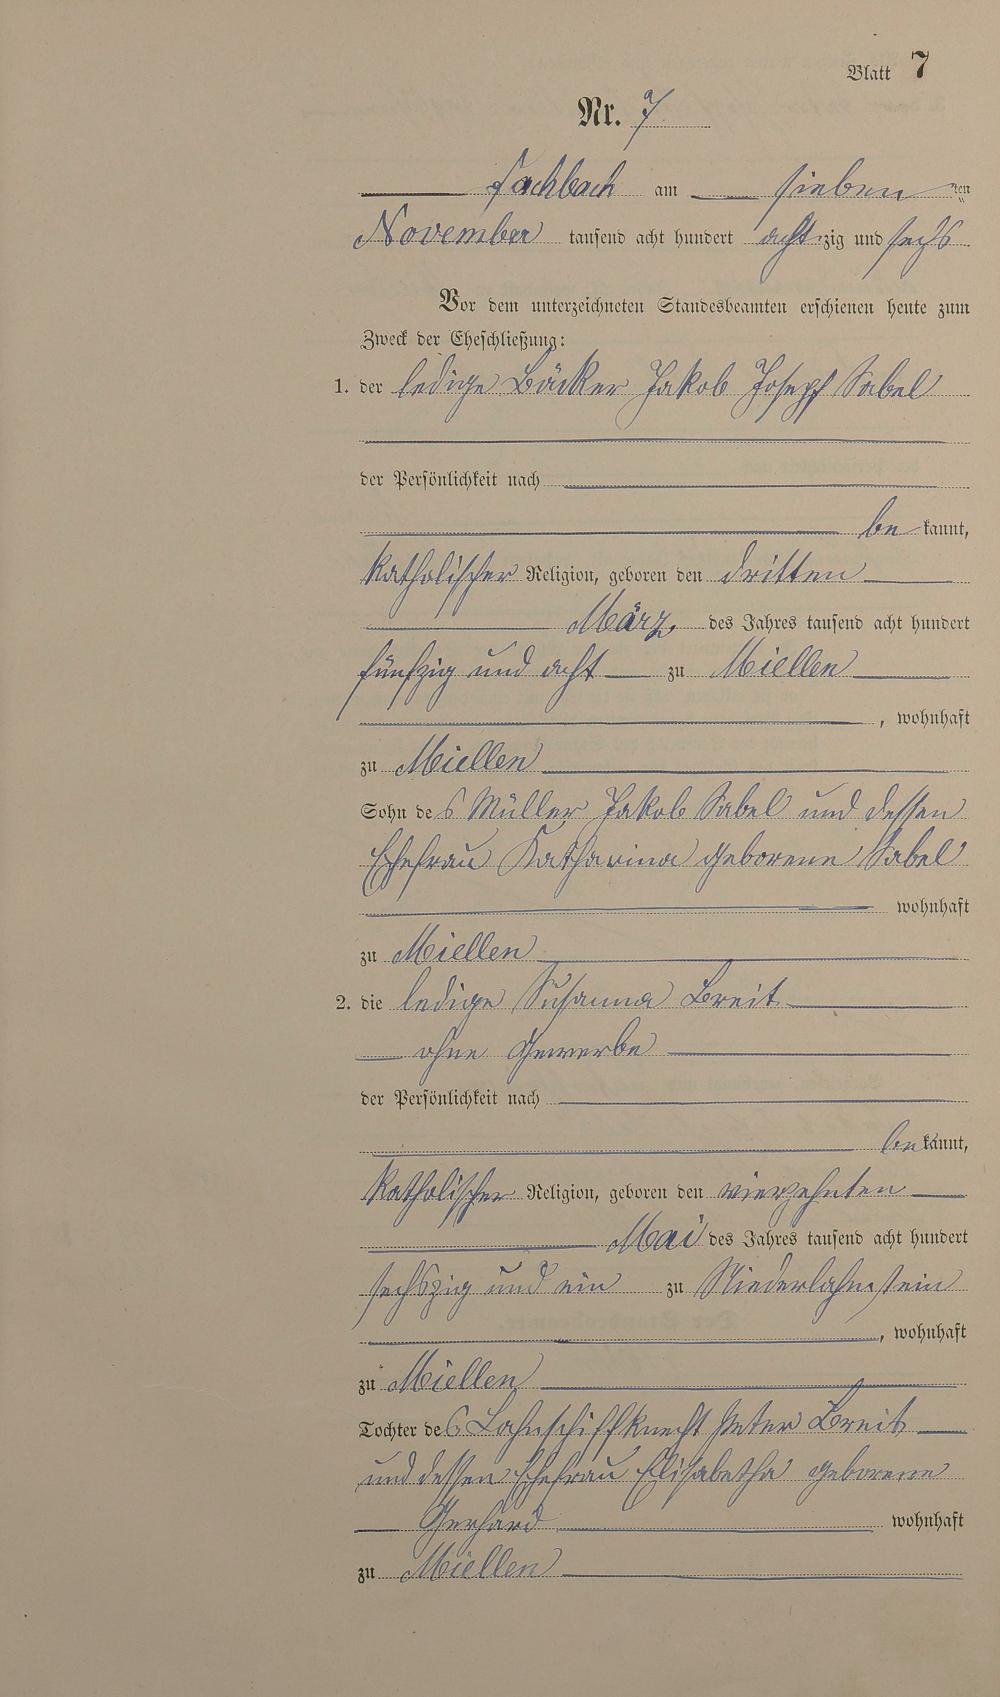 Blatt 7
Nr. 7
Fachbach am sieben ten
November tausend acht hundert achtzig und sechs
Vor dem unterzeichneten Standesbeamten erschienen heute zum
Zweck der Eheschließung:
1. der ledige Bäcker Jakob Joseph Sabel
der Persönlichkeit nach
bekannt,
katholischer Religion, geboren den dritten
März des Jahres tausend acht hundert
fünfzig und acht zu Miellen
, wohnhaft
zu Miellen
Sohn des Müller Jakob Sabel und dessen
Ehefrau Katharina geborene Sabel
wohnhaft
zu Miellen
2. die ledige Susanna Breit
ohne Gewerbe
der Persönlichkeit nach
bekannt,
katholischer Religion, geboren den vierzehnten
Mai des Jahres tausend acht hundert
sechszig und ein zu Niederlahnstein
, wohnhaft
zu Miellen
Tochter des Lahnschiffknecht Peter Breit
und dessen Ehefrau Elisabetha geborene
Gerhard wohnhaft
zu Miellen